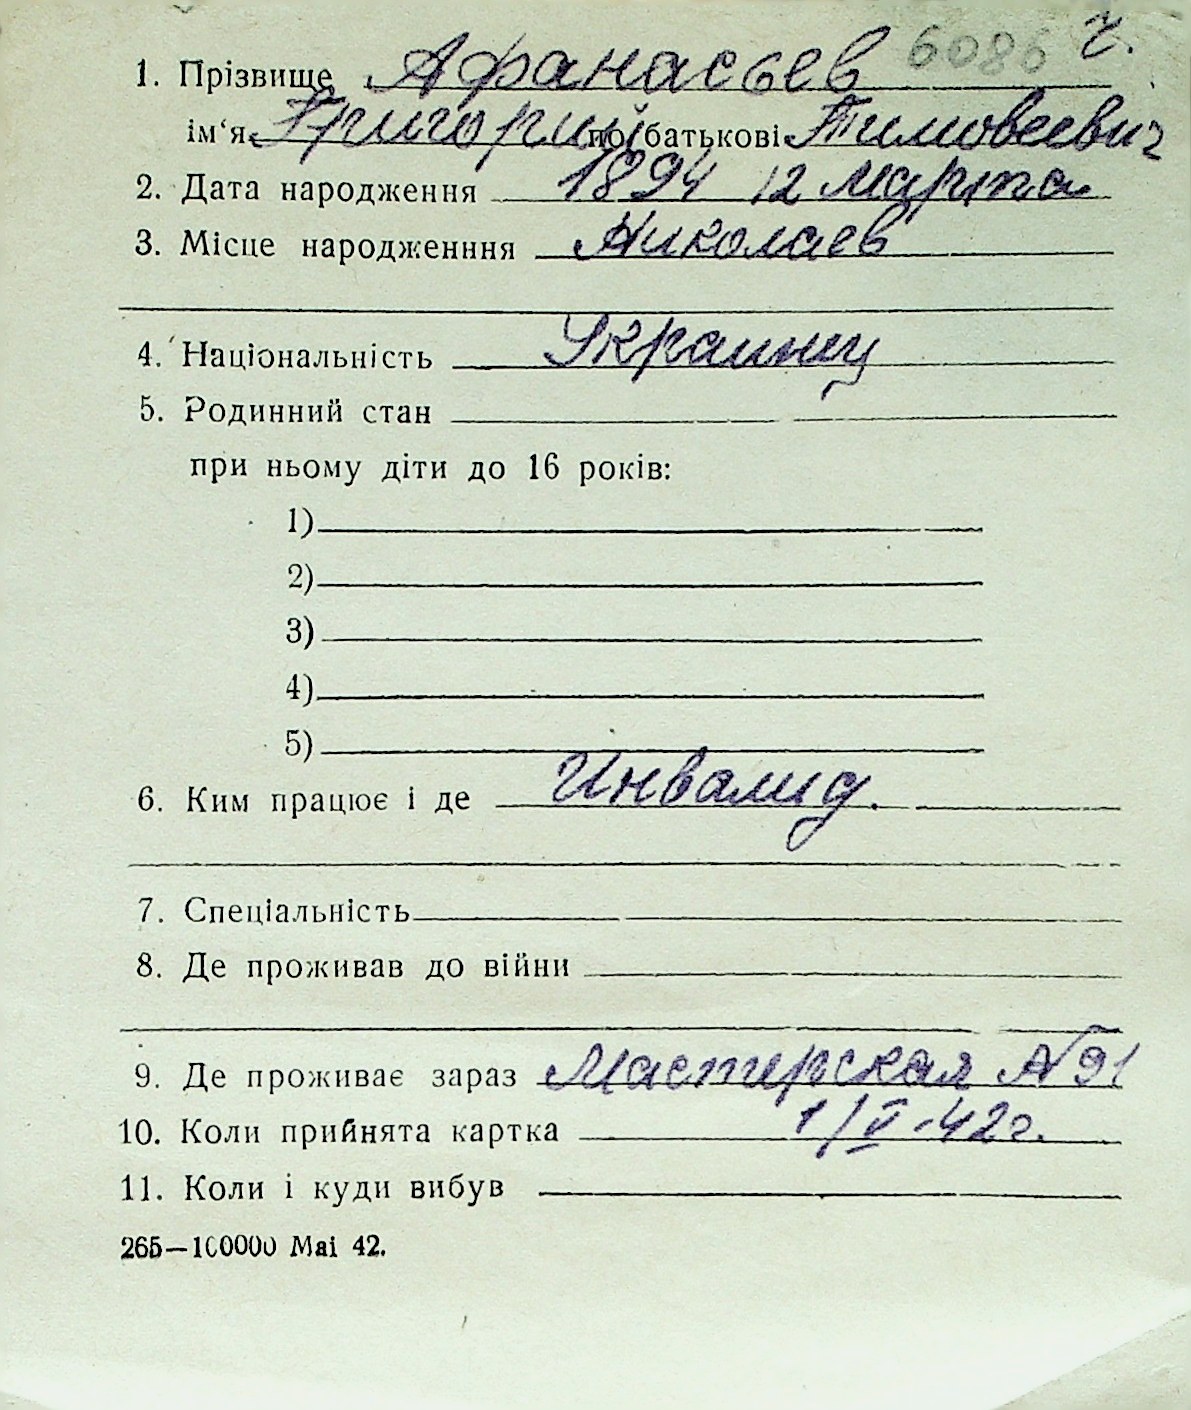 6086 г.
1. Прізвище Афанасьев
ім‘я Григорий по батькові Тимовеевич
2. Дата народження 1894 12 Марта
3. Місце народженння Николаев
4. Національність Украинец
5. Родинний стан
при ньому діти до 16 років:
1)
2)
3)
4)
5)
6. Ким працює і де Инвалид.
7. Спеціальність
8. Де проживав до війни
9. Де проживає зараз Мастерская №91
10. Коли прийнята картка 1/V-42г.
11. Коли і куди вибув
265—100000 Mai 42.